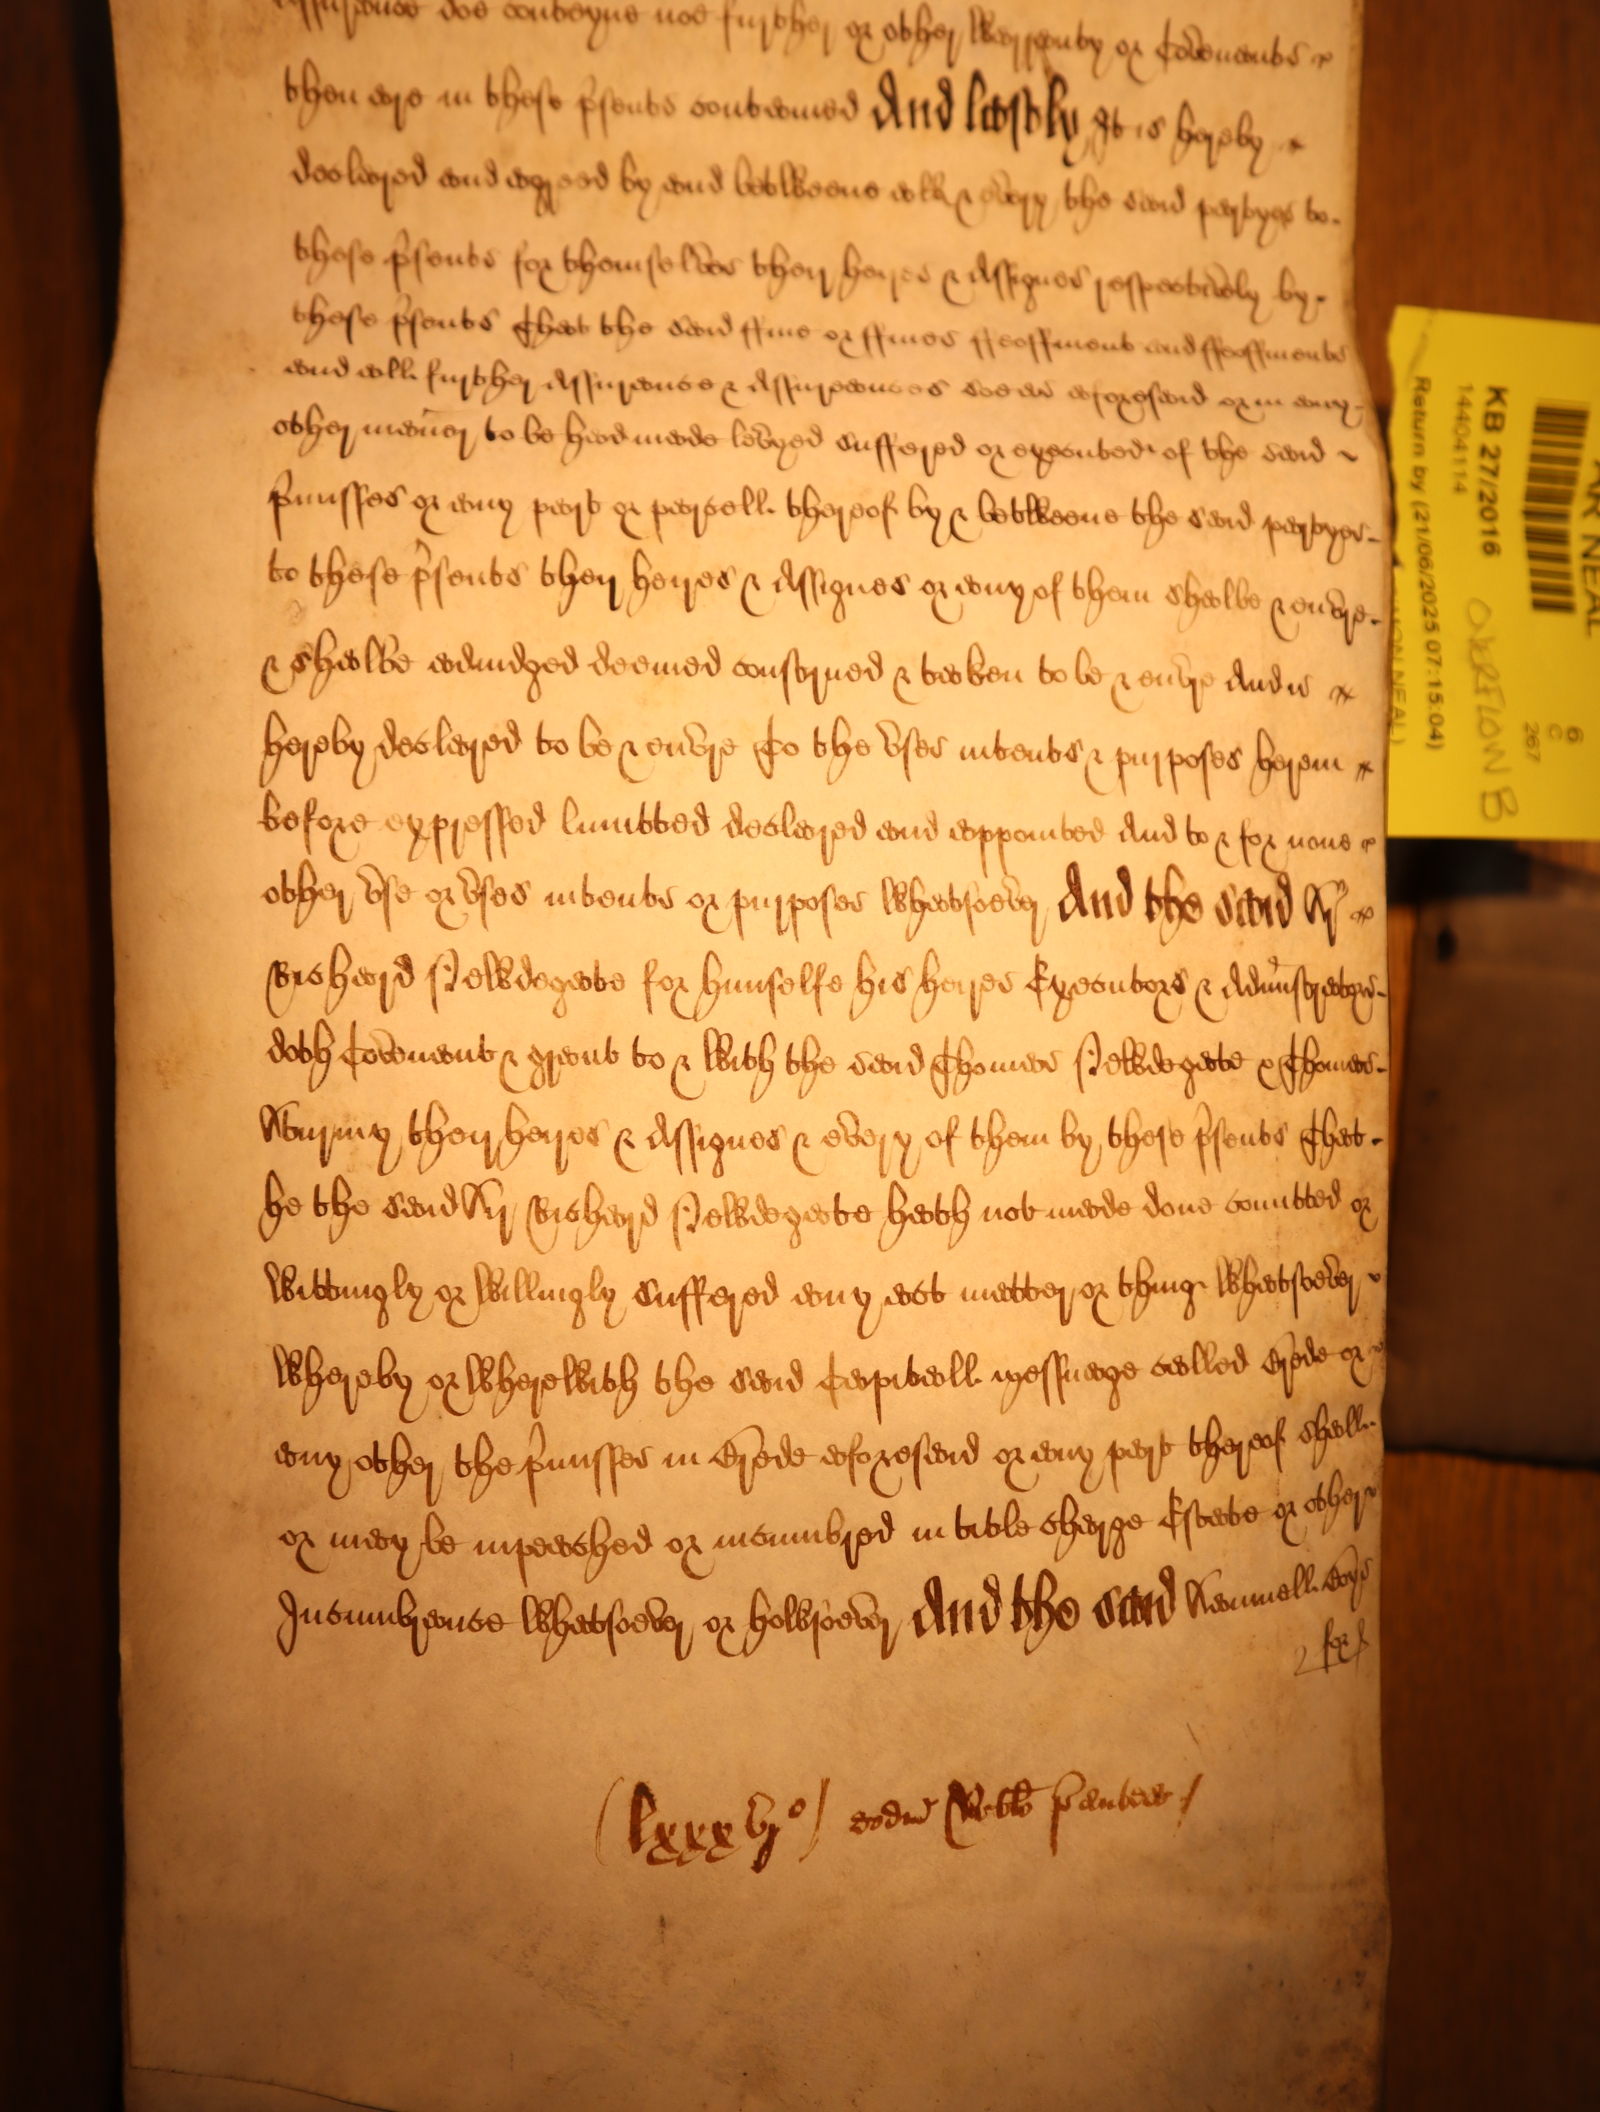 Assurance doe conteyne noe further or other Warranty or Covenants
then are in these p'sents contained And lastly It is hereby
declared and agreed by and betweene all & every the said partyes to
these p'sents for themselves their heires & Assignes respectively by
these p'sents That the said ffine or ffines ffeoffment and ffeoffments
and all further Assurance & Assurances soe as aforesaid or in any
other mañer to be had made levyed suffered or executed of the said
p'misses or any part or parcell thereof by & betweene the said partyes
to these p'sents their heires & Assignes or any of them shalbe & enure
& shalbe adiudged deemed construed & taken to be & enure And is
hereby declared to be & enure To the vses intents & purposes herein
before expressed limitted declared and appointed And to & for none
other vse or vses intents or purposes whatsoever And the said Sr
Richard Newdegate for himselfe his heires Executors & Adm'istrators
doth Covenant & grant to & with the said Thomas Newdegate & Thomas
their heires & Assignes & every of them by these p'sents That
he the said Sr Richard Newdegate hath not made done comitted or
wittingly or willingly suffered any act matter or thing whatsoever
whereby or wherewith the said Capitall messuage called or
any other the p'misses in aforesaid or any part thereof shall
or may be impeached or incumbred in title charge Estate or other
Incumbrance whatsoever or howsoever And the said
for
(lxxxvjº)
KB 27/2016
14404114
Return by (21/06/2025 07:15:04)
OVERFLOW B
6
C
267
AR NEAL